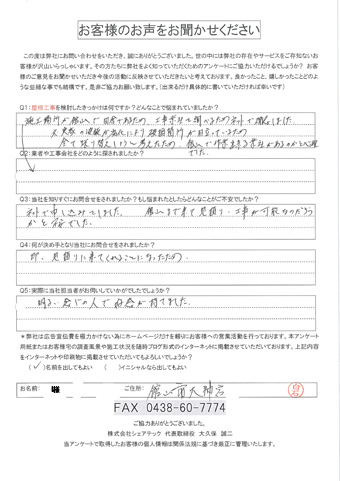 お客様のお声をお聞かせください
この度は弊社にお問い合わせをいただき、誠にありがとうございました。世の中には弊社の存在やサービスをご存知ないお
客様が沢山いらっしゃいます。その方たちに弊社をよく知っていただくためのアンケートにご協力いただけるでしょうか？お客
様のご意見をお聞かせいただき今後の活動に反映させていきたいと考えております。良かったこと、嬉しかったことどのよ
うな些細な事でも結構です、是非ご協力お願い致します。(出来るだけ具体的に書いていただければ幸いです)
Q1:屋根工事を検討したきっかけは何ですか？どんなことで悩まれていましたか？
Q2:業者や工事会社をどのように探されましたか？
Q3:当社を知りすぐにお問合せをされましたか？もし悩まれたとしたらどんなことがご不安でしたか？
ネットで申し込みでした。館山まで来て見積り・工事が可能なのだろう
かと不安でした。
Q4:何が決め手となり当社にお問合せをされましたか？
即、見積りに来てくれることになったため。
Q5:実際に当社担当者がお伺いしていかがでしたでしょうか？
明るい感じの人で好感が持てました。
＊弊社は広告宣伝費を極力かけない為にホームページだけを頼りにお客様への営業活動を行っております。本アンケート
用紙またはお客様宅の調査風景や施工状況を随時ブログ形式のインターネットに掲載させていただいております。上記内容
をインターネットや印刷物に掲載させていただいてもよろしいでしょうか？
(✓)名前を出してもよい ( )イニシャルなら出してもよい
お名前: ご住所: 館山市大神宮
FAX 0438-60-7774
ご協力ありがとうございました。
株式会社シェアテック 代表取締役 大久保 誠二
当アンケートで取得したお客様の個人情報は関係法規に基づき厳正に管理いたします。